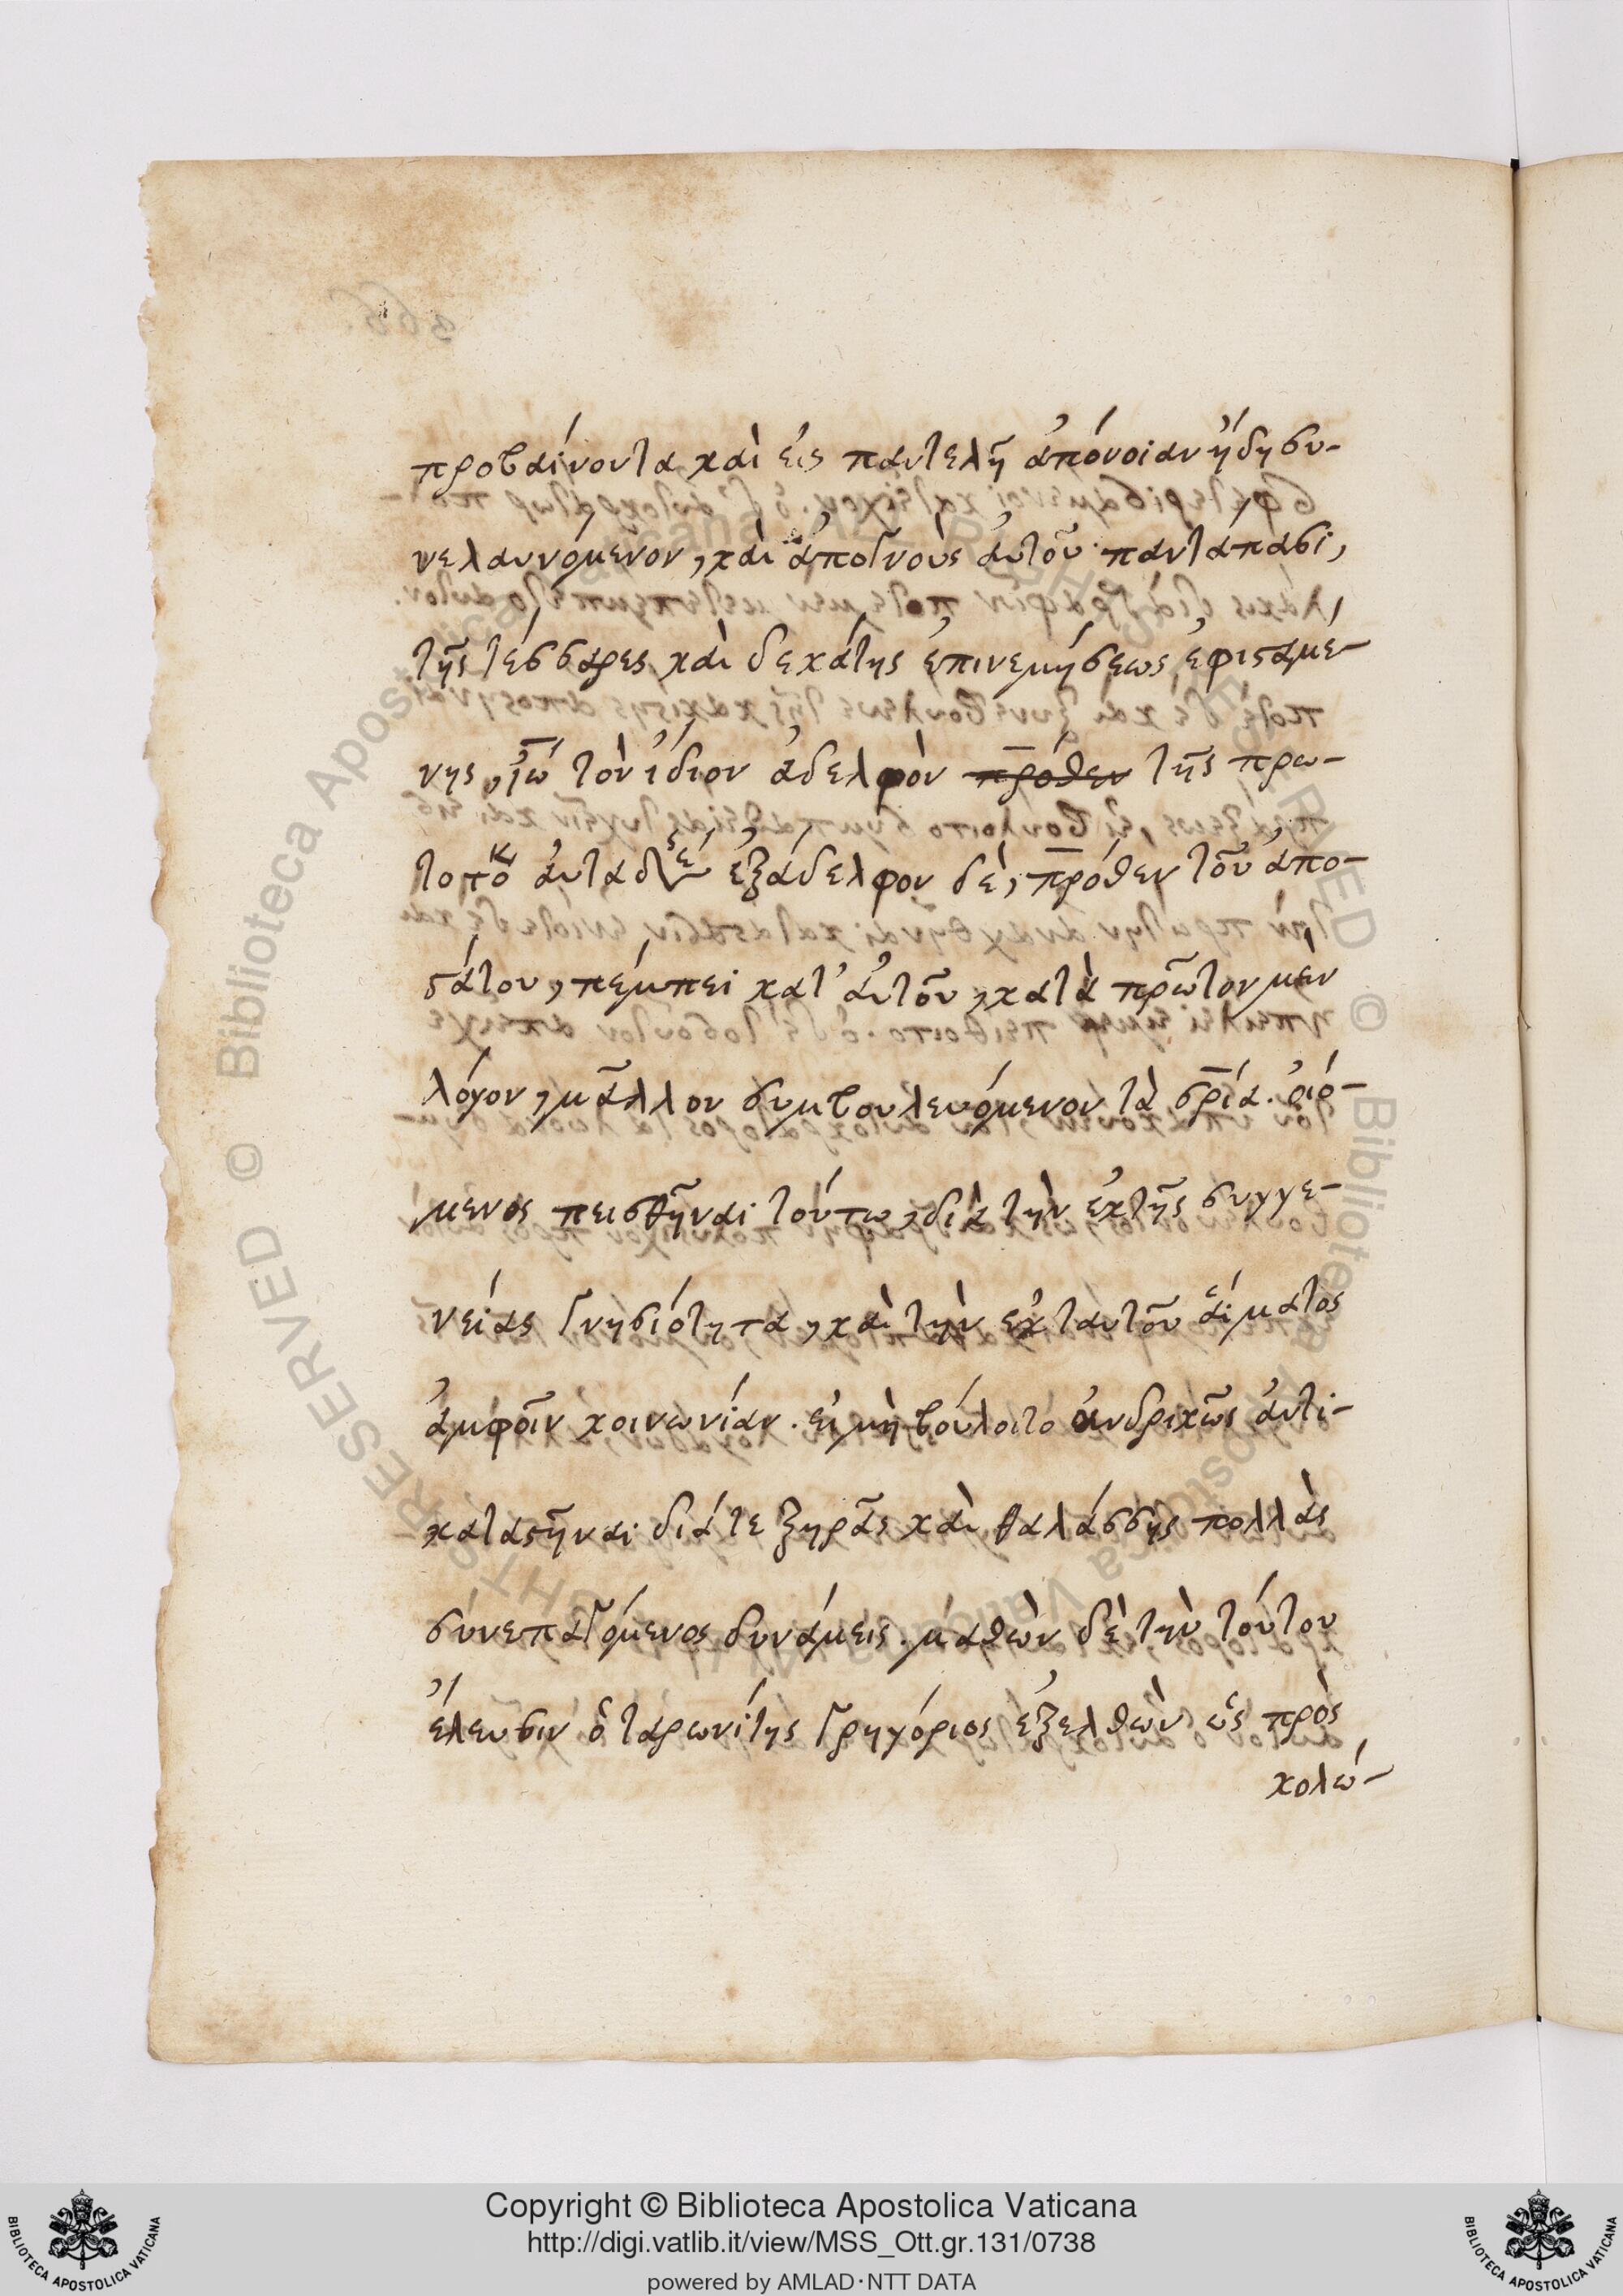 προβαίνοντα καὶ εἰς παντελῆ ἀπόνοιαν ἤδη συ-
νελαυνόμενον, καὶ ἀπογνοὺς αὐτοῦ παντάπασι,
τῆς τέσσαρες καὶ δεκάτης ἐπινεμήσεως ἐφισταμέ-
νης, ἰω τὸν ἴδιον ἀδελφὸν πρόθεν τῆς πρω-
τοτόκ αὐταδ ἐξάδελφον δὲ, πρόθεν τοῦ ἀπο-
στάτου, πέμπει κατ' αὐτοῦ, κατὰ πρῶτον μὲν
λόγον, μᾶλλον συμβουλευόμενον τὰ σρία. οἰό-
μενος πεισθῆναι τούτω, διὰ τὴν ἐκ τῆς συγγε-
νείας γνησιότητα, καὶ τὴν ἐκ ταυτοῦ αἵματος
ἀμφοῖν κοινωνίαν. εἰ μὴ βούλοιτο ἀνδρικῶς ἀντι-
καταστῆναι διά τε ξηρᾶς καὶ θαλάσσης πολλὰς
συνεπαγόμενος δυνάμεις. μαθὼν δὲ τὴν τούτου
ἔλευσιν ὁ ταρωνίτης γρηγόριος ἐξελθὼν ὡς πρὸς
κολώ-
Copyright © Biblioteca Apostolica Vaticana
http://digi.vatlib.it/view/MSS_Ott.gr.131/0738
powered by AMLAD·NTT DATA
BIBLIOTECA APOSTOLICA VATICANA
BIBLIOTECA APOSTOLICA VATICANA